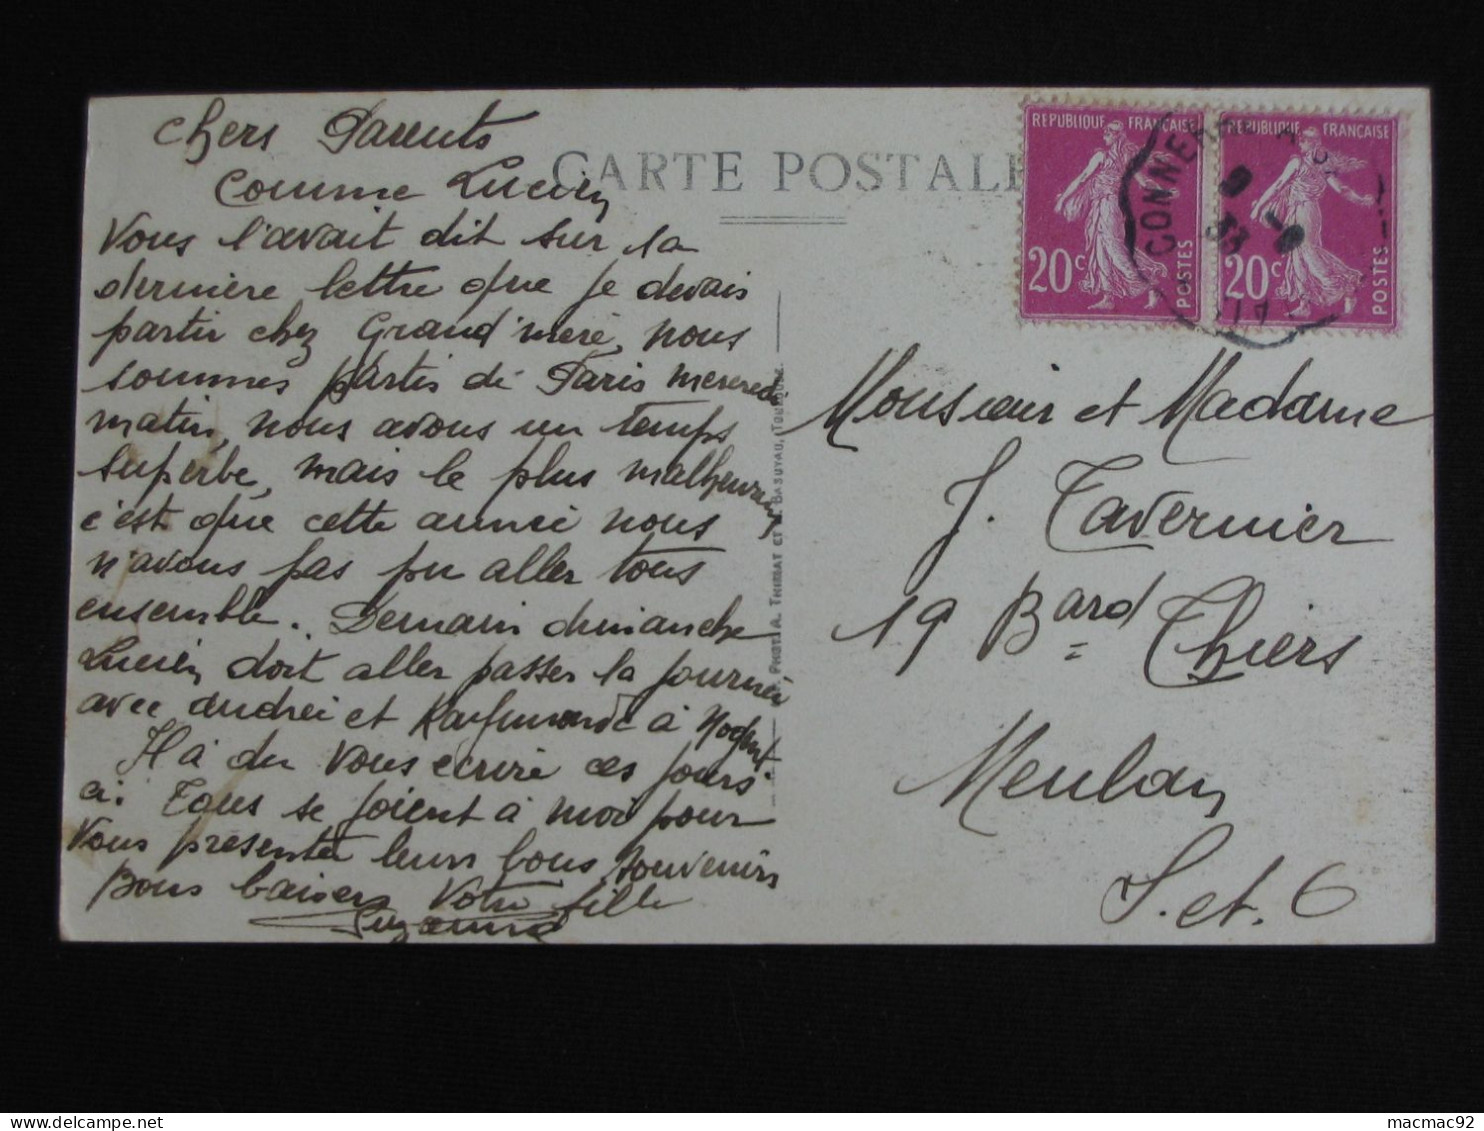 Chers Parents
CARTE POSTALE
Comme Lucien
Vous l'avait dit sur sa
dernière lettre que je devais
partir chez Grand'mère, nous
sommes partis de Paris mercredi
matin, nous avons un temps
superbe, mais le plus malheureux
c'est que cette année nous
n'avons pas pu aller tous
ensemble. Demain dimanche
Lucien doit aller passer la journée
avec Andrée et Raymonde à Nogent
Il a du vous écrire ces jours
ci. Tous se joient à moi pour
Vous présenter leurs bons souvenirs
Bons baisers Votre fille
Suzanne
PHOTO A. THIRIAT ET BASUYAU, (TOULOUSE.
REPUBLIQUE FRANÇAISE
20c POSTES
REPUBLIQUE FRANÇAISE
20c POSTES
CONNERR
9 -8
33
Monsieur et Madame
J. Tavernier
19 Bard Thiers
Meulan
S. et. O
macmac92